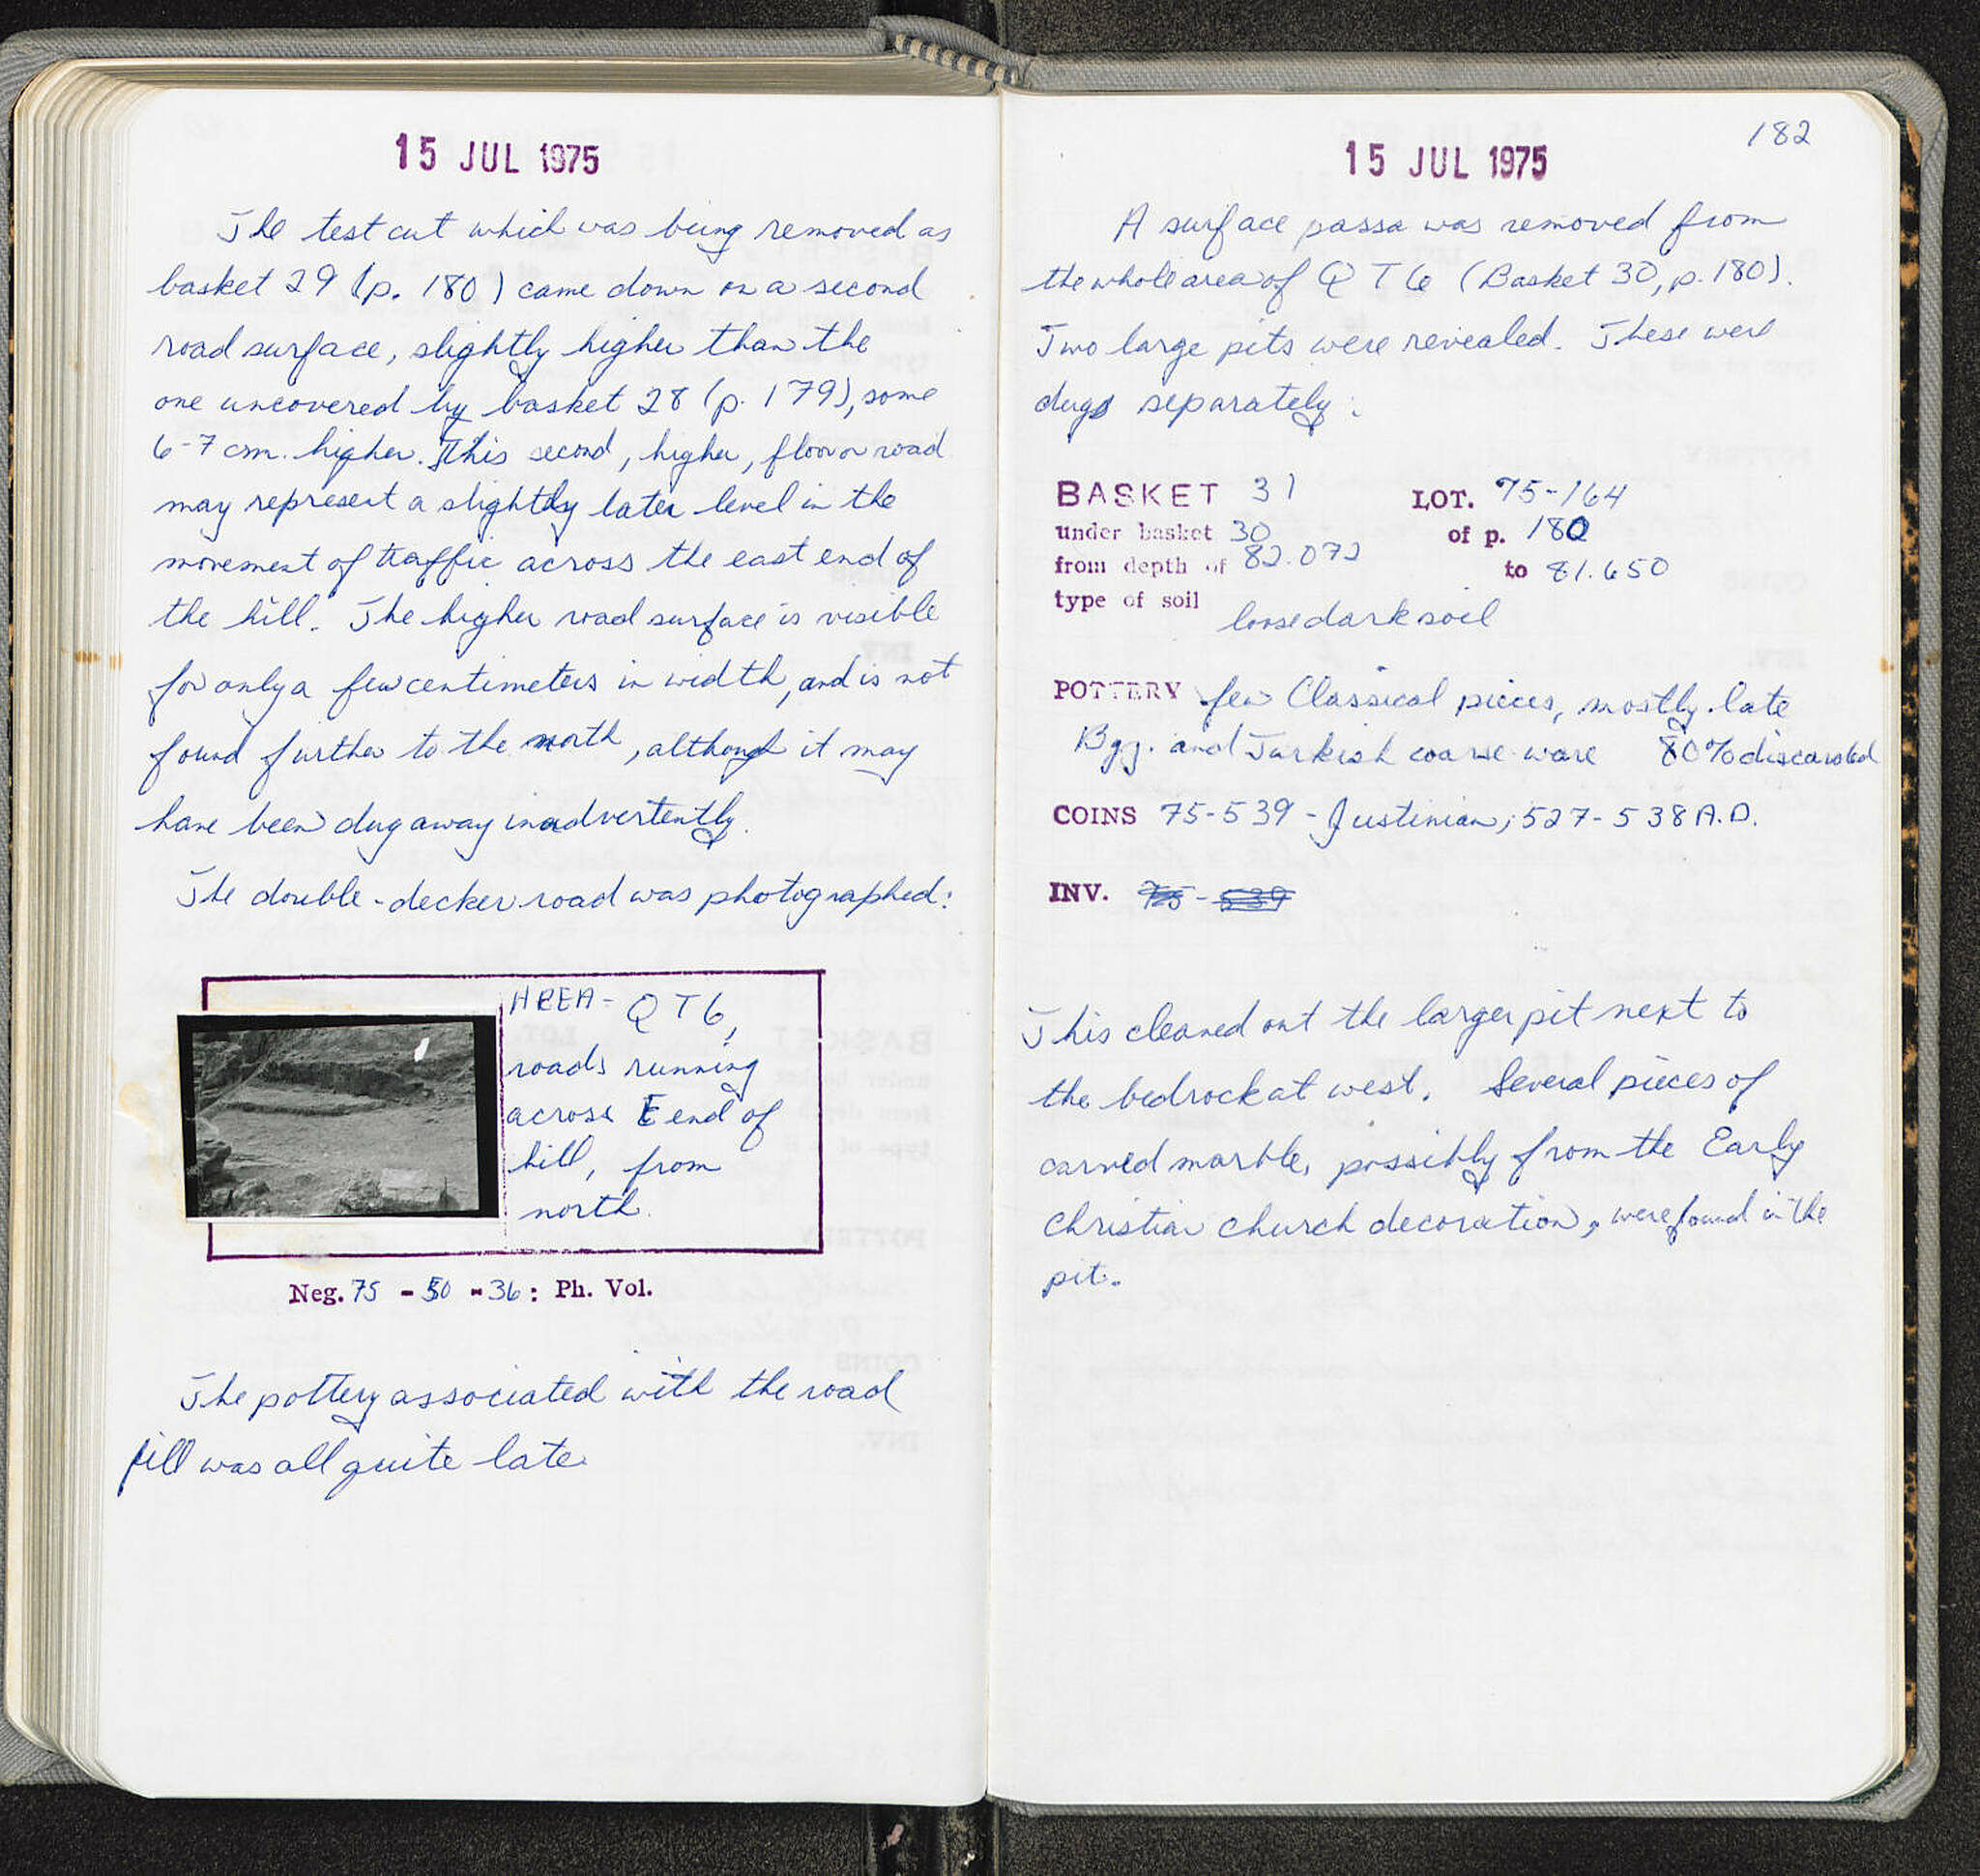 15 JUL 1975
The test cut which was being removed as
basket 29 (p. 180) came down on a second
road surface, slightly higher than the
one uncovered by basket 28 (p. 179), some
6-7 cm. higher. This second, higher, floor or road
may represent a slightly later level in the
movement of traffic across the east end of
the hill. The higher road surface is visible
for only a few centimeters in width, and is not
found further to the north, although it may
have been dug away inadvertently.
The double-decker road was photographed:
AREA - QT6,
roads running
across E end of
hill, from
north.
Neg. 75 - 50 - 36: Ph. Vol.
The pottery associated with the road
fill was all quite late.
182
15 JUL 1975
A surface passa was removed from
the whole area of QT6 (Basket 30, p. 180).
Two large pits were revealed. These were
dug separately:
BASKET 31 LOT. 75-164
under basket 30 of p. 180
from depth of 82.072 to 81.650
type of soil
loose dark soil
POTTERY few Classical pieces, mostly late
Byz. and Turkish coarse ware 80% discarded
COINS 75-539 - Justinian, 527-538 A.D.
INV. 75-539
This cleaned out the larger pit next to
the bedrock at west. Several pieces of
carved marble, possibly from the Early
Christian church decoration, were found in the
pit.